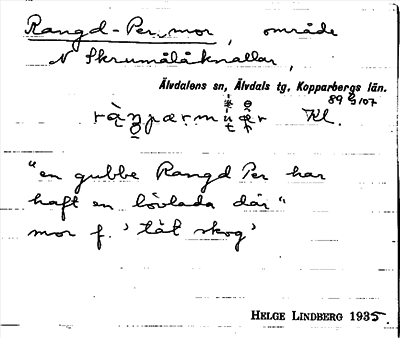 Rangd-Per mor, område
N Skrumålåknallar,
Älvdalens sn, Älvdals tg. Kopparbergs län.
89 G 107
Kl.
"en gubbe Rangd Per har
haft en lövlada där"
mor f. 'tät skog'
HELGE LINDBERG 1935.